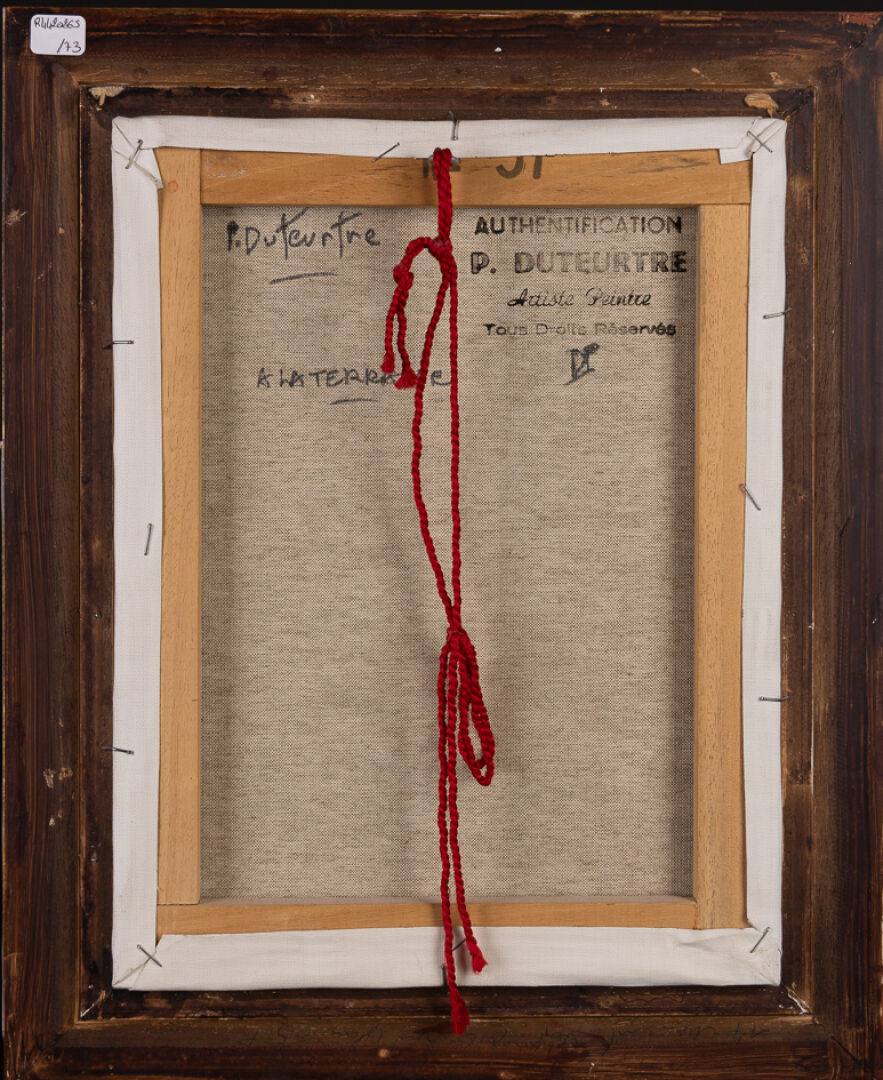 /73
P. Duteurtre
A LA TERRASSE
AUTHENTIFICATION
P. DUTEURTRE
Artiste Peintre
Tous Droits Réservés